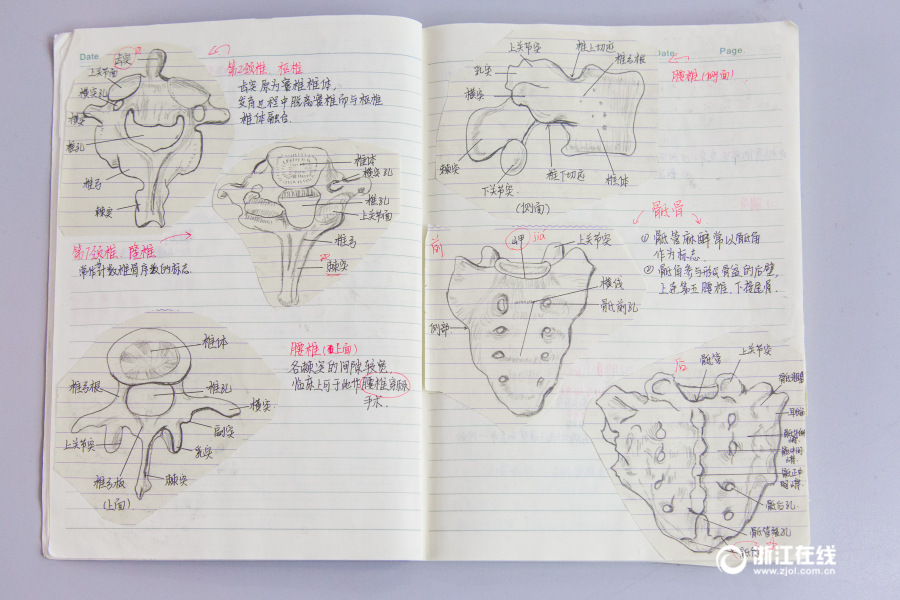 Date
齿突
上关节面
横突孔
横突
椎孔
椎弓
棘突
第2颈椎、枢椎
齿突原为寰椎椎体,
发育过程中脱离寰椎而与枢椎
椎体融合.
椎体
横突孔
椎孔
上关节面
椎弓
棘突
第7颈椎、隆椎
常作计数椎骨序数的标志.
椎体
椎弓根
椎孔
横突
副突
上关节突
乳突
椎弓板
棘突
(上面)
腰椎(上面)
各棘突的间隙较宽,
临床上可于此作腰椎穿刺术
手术.
Date.
Page.
上关节突
椎上切迹
椎弓根
乳突
横突
棘突
下关节突
椎下切迹
椎体
(侧面)
腰椎(侧面)
前
岬 jiǎ
上关节突
横线
骶前孔
侧部
骶骨
① 骶管麻醉常以骶角
作为标志.
② 骶骨参与形成骨盆的后壁,
上连第五腰椎、下接尾骨.
后
骶管
上关节突
骶粗隆
耳状面
骶中间
嵴
骶正中
嵴
骶后孔
骶管裂孔
骶角
浙江在线
www.zjol.com.cn